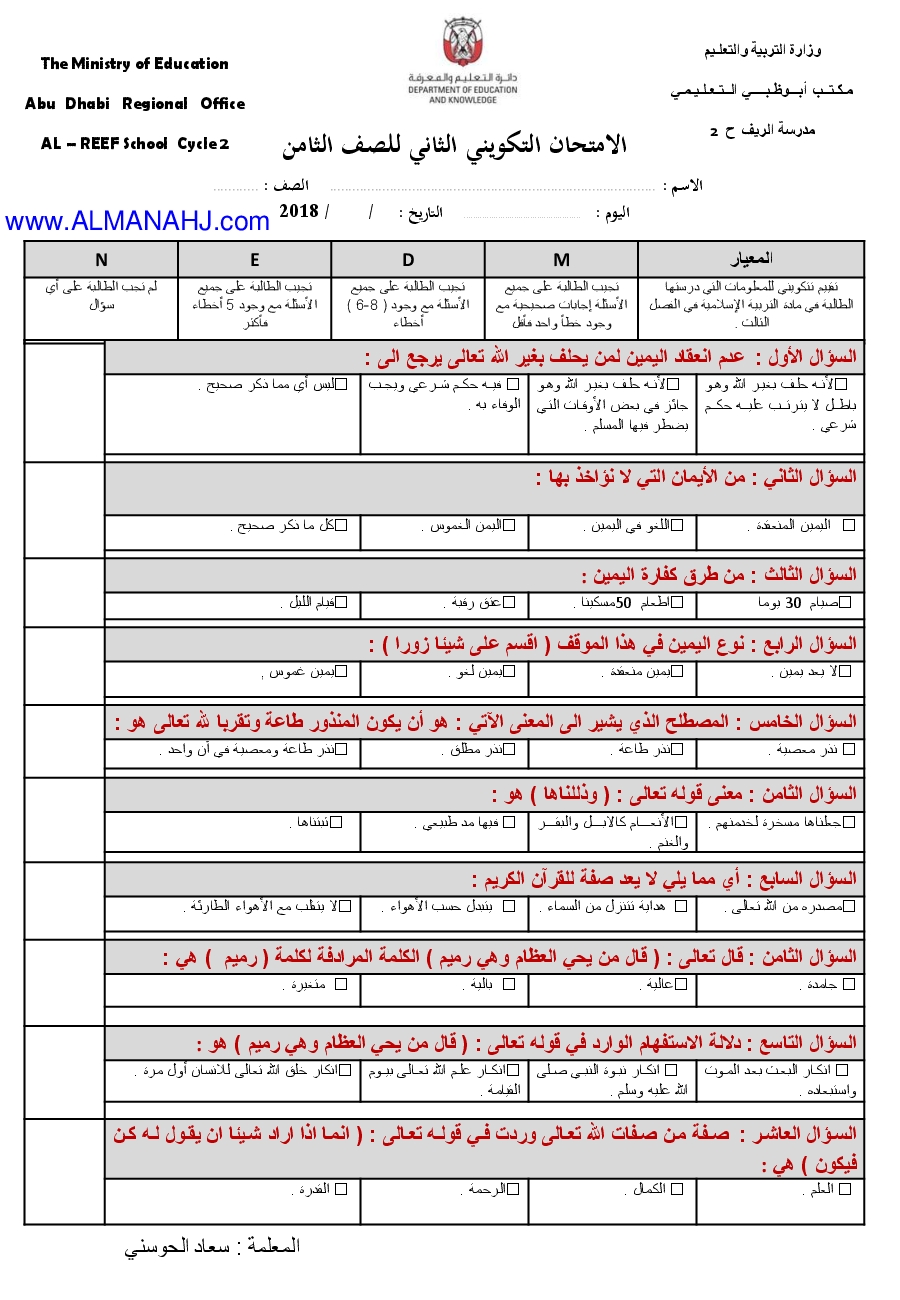 وزارة التربية والتعليم
مكتب أبوظبي التعليمي
مدرسة الريف ح 2
دائرة التعليم والمعرفة
DEPARTMENT OF EDUCATION
AND KNOWLEDGE
The Ministry of Education
Abu Dhabi Regional Office
AL – REEF School Cycle 2
الامتحان التكويني الثاني للصف الثامن
الاسم : ........................ الصف : ............
اليوم : ........................ التاريخ : / / 2018
www.ALMANAHJ.com
المعيار M D E N
تقييم تتكويني للمعلومات التي درستها
الطالبة في مادة التربية الإسلامية في الفصل
الثالث .
تجيب الطالبة على جميع
الأسئلة إجابات صحيحية مع
وجود خطأ واحد فأقل
تجيب الطالبة على جميع
الأسئلة مع وجود ( 8-6 )
أخطاء
تجيب الطالبة على جميع
الأسئلة مع وجود 5 أخطاء
فأكثر
لم تجب الطالبة على أي
سؤال
السؤال الأول : عدم انعقاد اليمين لمن يحلف بغير الله تعالى يرجع الى :
□لأنه حلف بغير الله وهو
باطل لا يترتب عليه حكم
شرعي .
□لأنه حلف بغير الله وهو
جائز في بعض الأوقات التي
يضطر فيها المسلم .
□ فيه حكم شرعي ويجب
الوفاء به .
□ليس أي مما ذكر صحيح .
السؤال الثاني : من الأيمان التي لا نؤاخذ بها :
□ اليمين المنعقدة .
□اللغو في اليمين .
□اليمن الغموس .
□كل ما ذكر صحيح .
السؤال الثالث : من طرق كفارة اليمين :
□صيام 30 يوما
□اطعام 50مسكينا .
□عتق رقبة .
□قيام الليل .
السؤال الرابع : نوع اليمين في هذا الموقف ( اقسم على شيئا زورا ) :
□لا يعد يمين .
□يمين منعقدة .
□يمين لغو .
□يمين غموس ,
السؤال الخامس : المصطلح الذي يشير الى المعنى الآتي : هو أن يكون المنذور طاعة وتقربا لله تعالى هو :
□ نذر معصية .
□نذر طاعة .
□نذر مطلق .
□نذر طاعة ومعصية في آن واحد .
السؤال الثامن : معنى قوله تعالى : ( وذللناها ) هو :
□جعلناها مسخرة لخدمتهم .
□الأنعام كالابل والبقر
والغنم .
□ فيها مد طبيعي .
□ ثبتناها .
السؤال السابع : أي مما يلي لا يعد صفة للقرآن الكريم :
□مصدره من الله تعالى .
□ هداية تتنزل من السماء .
□ يتبدل حسب الأهواء .
□لا يتقلب مع الأهواء الطارئة .
السؤال الثامن : قال تعالى : ( قال من يحي العظام وهي رميم ) الكلمة المرادفة لكلمة ( رميم ) هي :
□ جامدة .
□عالية .
□ بالية .
□ متغيرة .
السؤال التاسع : دلالة الاستفهام الوارد في قوله تعالى : ( قال من يحي العظام وهي رميم ) هو :
□ انكار البعث بعد الموت
واستبعاده .
□ انكار نبوة النبي صلى
الله عليه وسلم .
□انكار علم الله تعالى بيوم
القيامة .
□انكار خلق الله تعالى للانسان أول مرة .
السؤال العاشر : صفة من صفات الله تعالى وردت في قوله تعالى : ( انما اذا اراد شيئا ان يقول له كن
فيكون ) هي :
□ العلم .
□ الكمال .
□الرحمة .
□ القدرة .
المعلمة : سعاد الحوسني